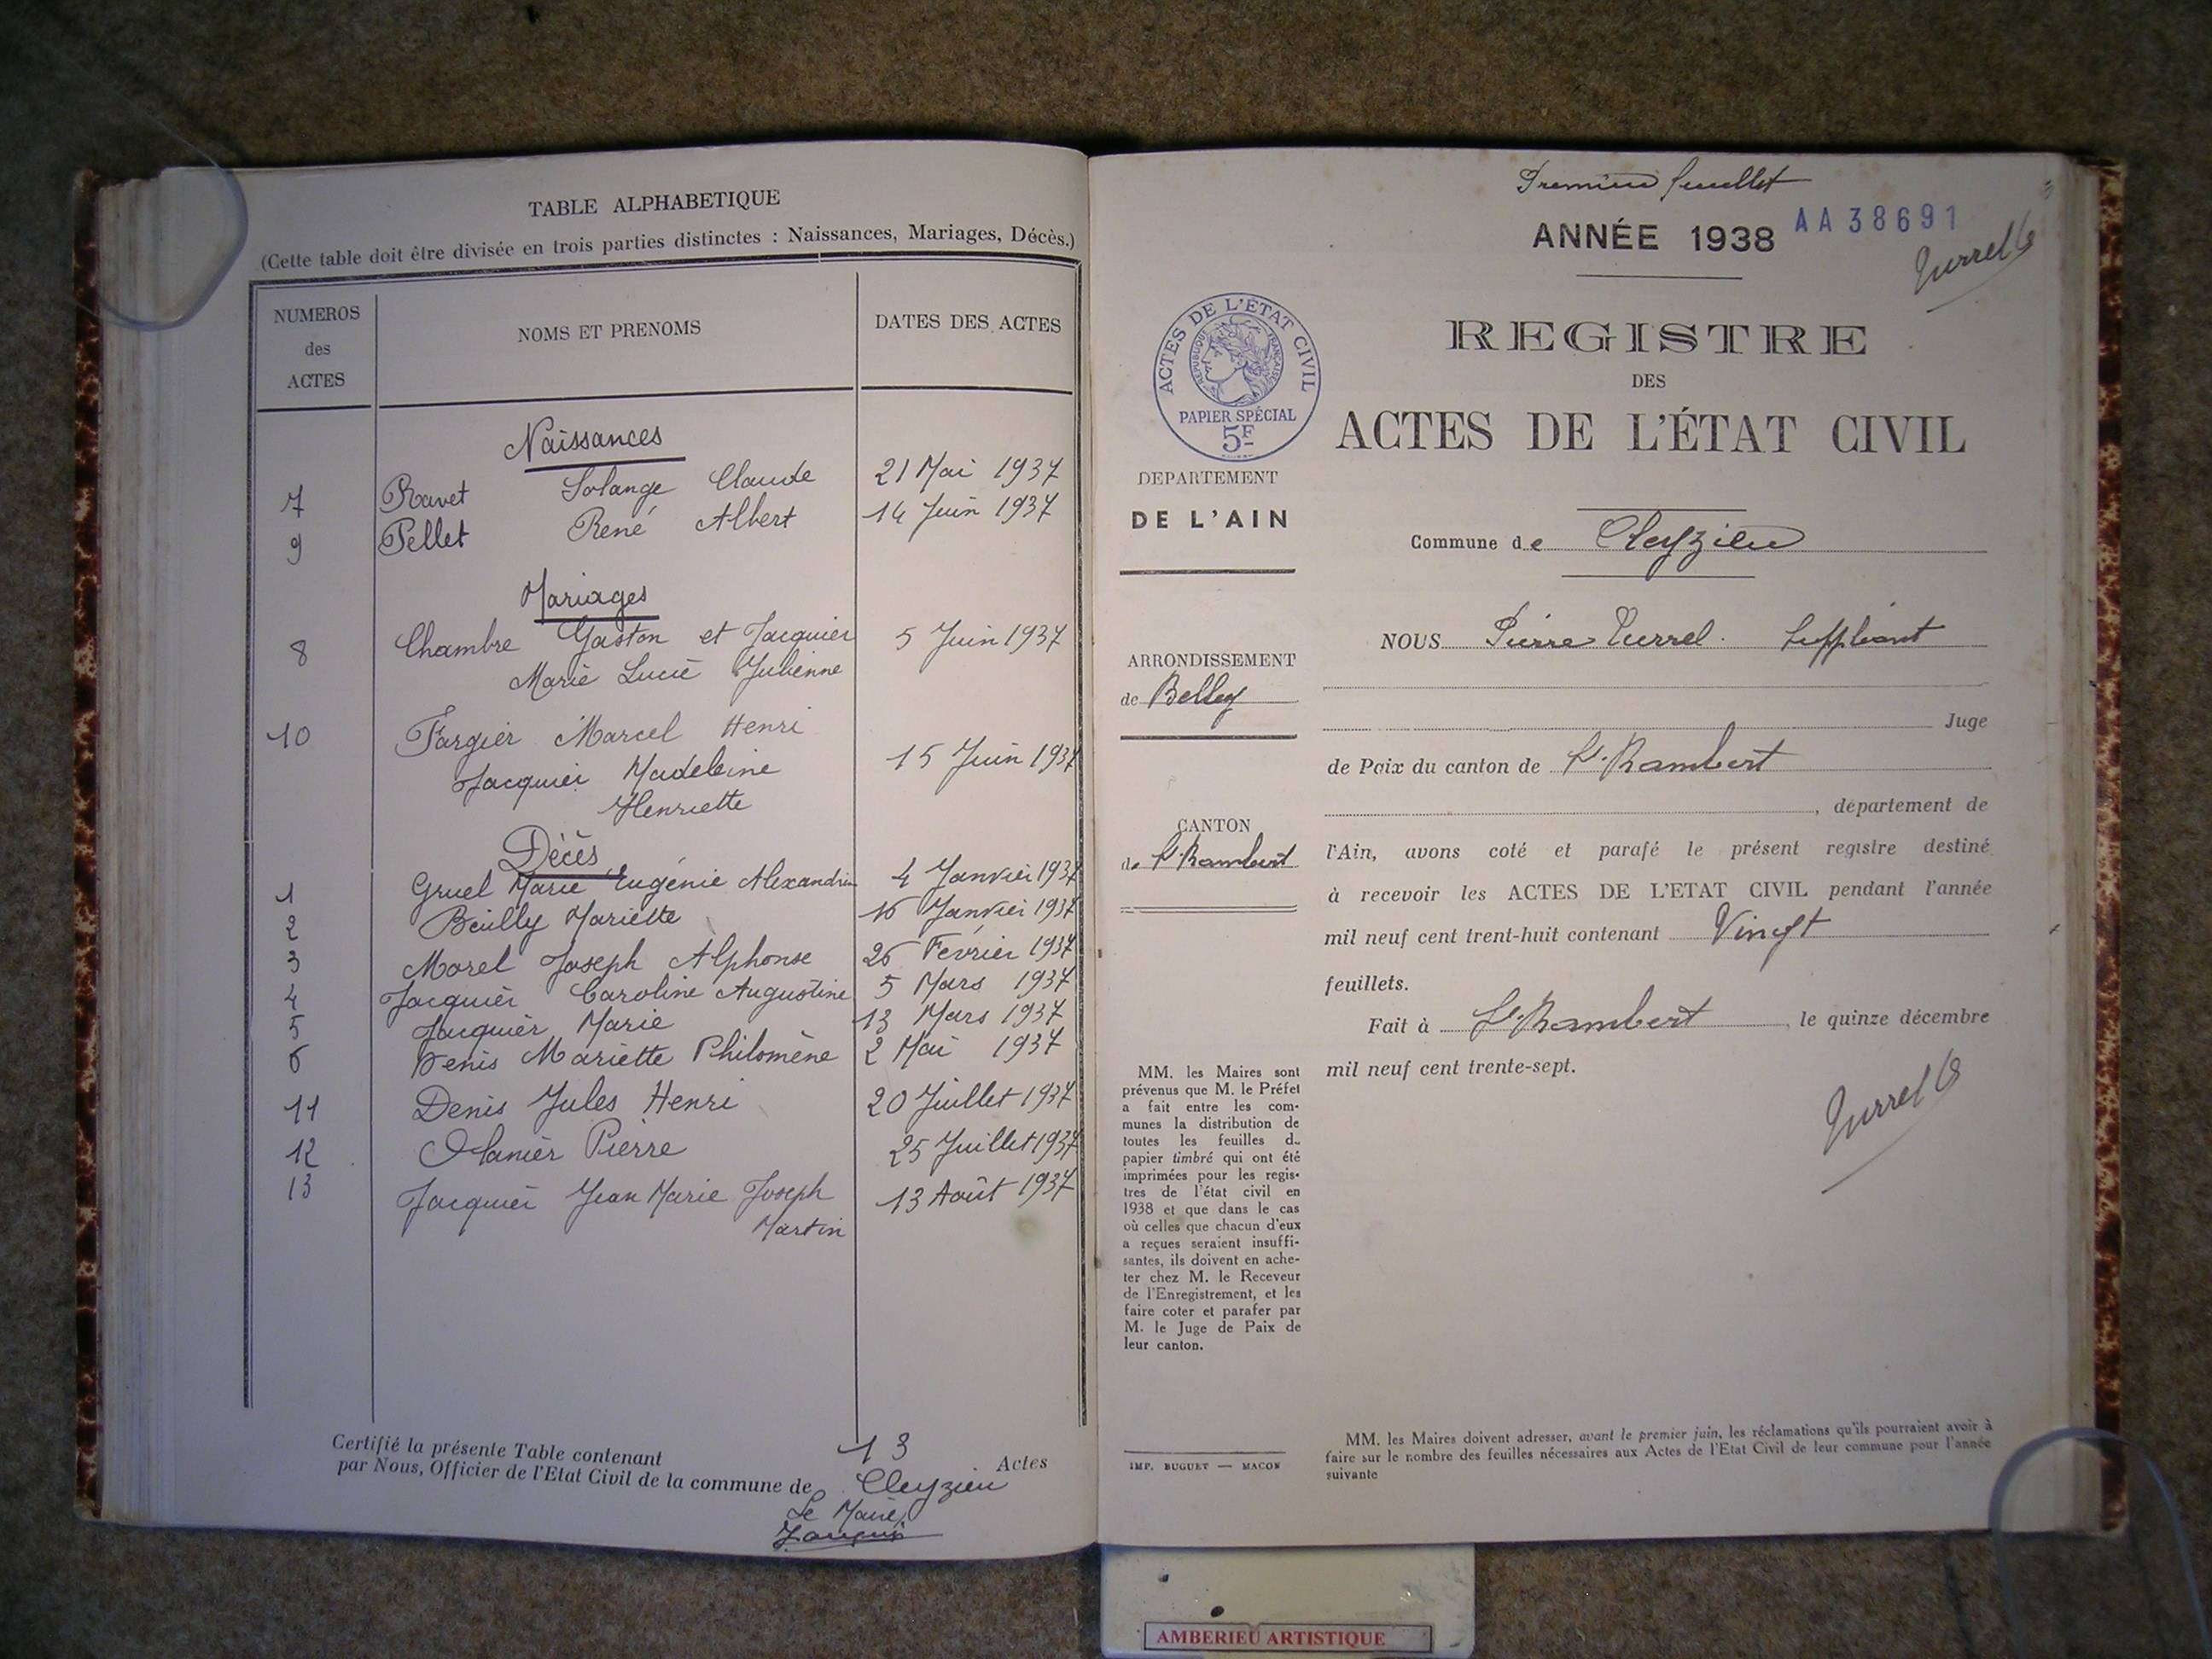 TABLE ALPHABETIQUE
(Cette table doit être divisée en trois parties distinctes : Naissances, Mariages, Décès.)
NUMEROS des ACTES
NOMS ET PRENOMS
DATES DES ACTES
Naissances
7 Ravet Solange Claude 21 Mai 1937
9 Pellet René Albert 14 Juin 1937
Mariages
8 Chambre Gaston et Jacquier 5 Juin 1937
Marie Lucie Julienne
10 Fargier Marcel Henri
Jacquier Madeleine 15 Juin 1937
Henriette
Décès
1 Gruel Marie Eugénie Alexandrine 4 Janvier 1937
2 Beuilly Mariette 16 Janvier 1937
3 Morel Joseph Alphonse 26 Février 1937
4 Jacquier Caroline Augustine 5 Mars 1937
5 Jacquier Marie 13 Mars 1937
6 Denis Mariette Philomène 2 Mai 1937
11 Denis Jules Henri 20 Juillet 1937
12 Pierre 25 Juillet 1937
13 Jacquier Jean Marie Joseph 13 Août 1937
Martin
Certifié la présente Table contenant 13 Actes
par Nous, Officier de l'Etat Civil de la commune de Cleyzieu
Le Maire,
Premier feuillet
ANNÉE 1938 AA38691
Turrel
REGISTRE
DES
ACTES DE L'ÉTAT CIVIL
ACTES DE L'ÉTAT CIVIL
REPUBLIQUE FRANÇAISE
PAPIER SPÉCIAL
5F
DEPARTEMENT
DE L'AIN
Commune de Cleyzieu
NOUS Pierre Turrel. Suppléant
ARRONDISSEMENT
de Belley
Juge
de Paix du canton de St. Rambert
, département de
CANTON
de St. Rambert
l'Ain, avons coté et parafé le présent registre destiné
à recevoir les ACTES DE L'ETAT CIVIL pendant l'année
mil neuf cent trent-huit contenant Vingt
feuillets.
Fait à St. Rambert, le quinze décembre
mil neuf cent trente-sept.
Turrel
MM. les Maires sont
prévenus que M. le Préfet
a fait entre les com-
munes la distribution de
toutes les feuilles d
papier timbré qui ont été
imprimées pour les regis-
tres de l'état civil en
1938 et que dans le cas
où celles que chacun d'eux
a reçues seraient insuffi-
santes, ils doivent en ache-
ter chez M. le Receveur
de l'Enregistrement, et les
faire coter et parafer par
M. le Juge de Paix de
leur canton.
IMP. BUGUET — MACON
MM. les Maires doivent adresser, avant le premier juin, les réclamations qu'ils pourraient avoir à
faire sur le nombre des feuilles nécessaires aux Actes de l'Etat Civil de leur commune pour l'année
suivante
AMBERIEU ARTISTIQUE